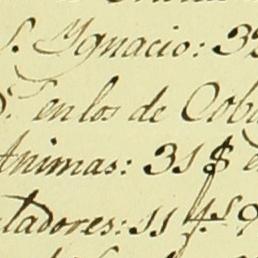 S. Ygnacio: 3
S. en los de Cob
Animas: 31 $
tadores: 11 4.s 9